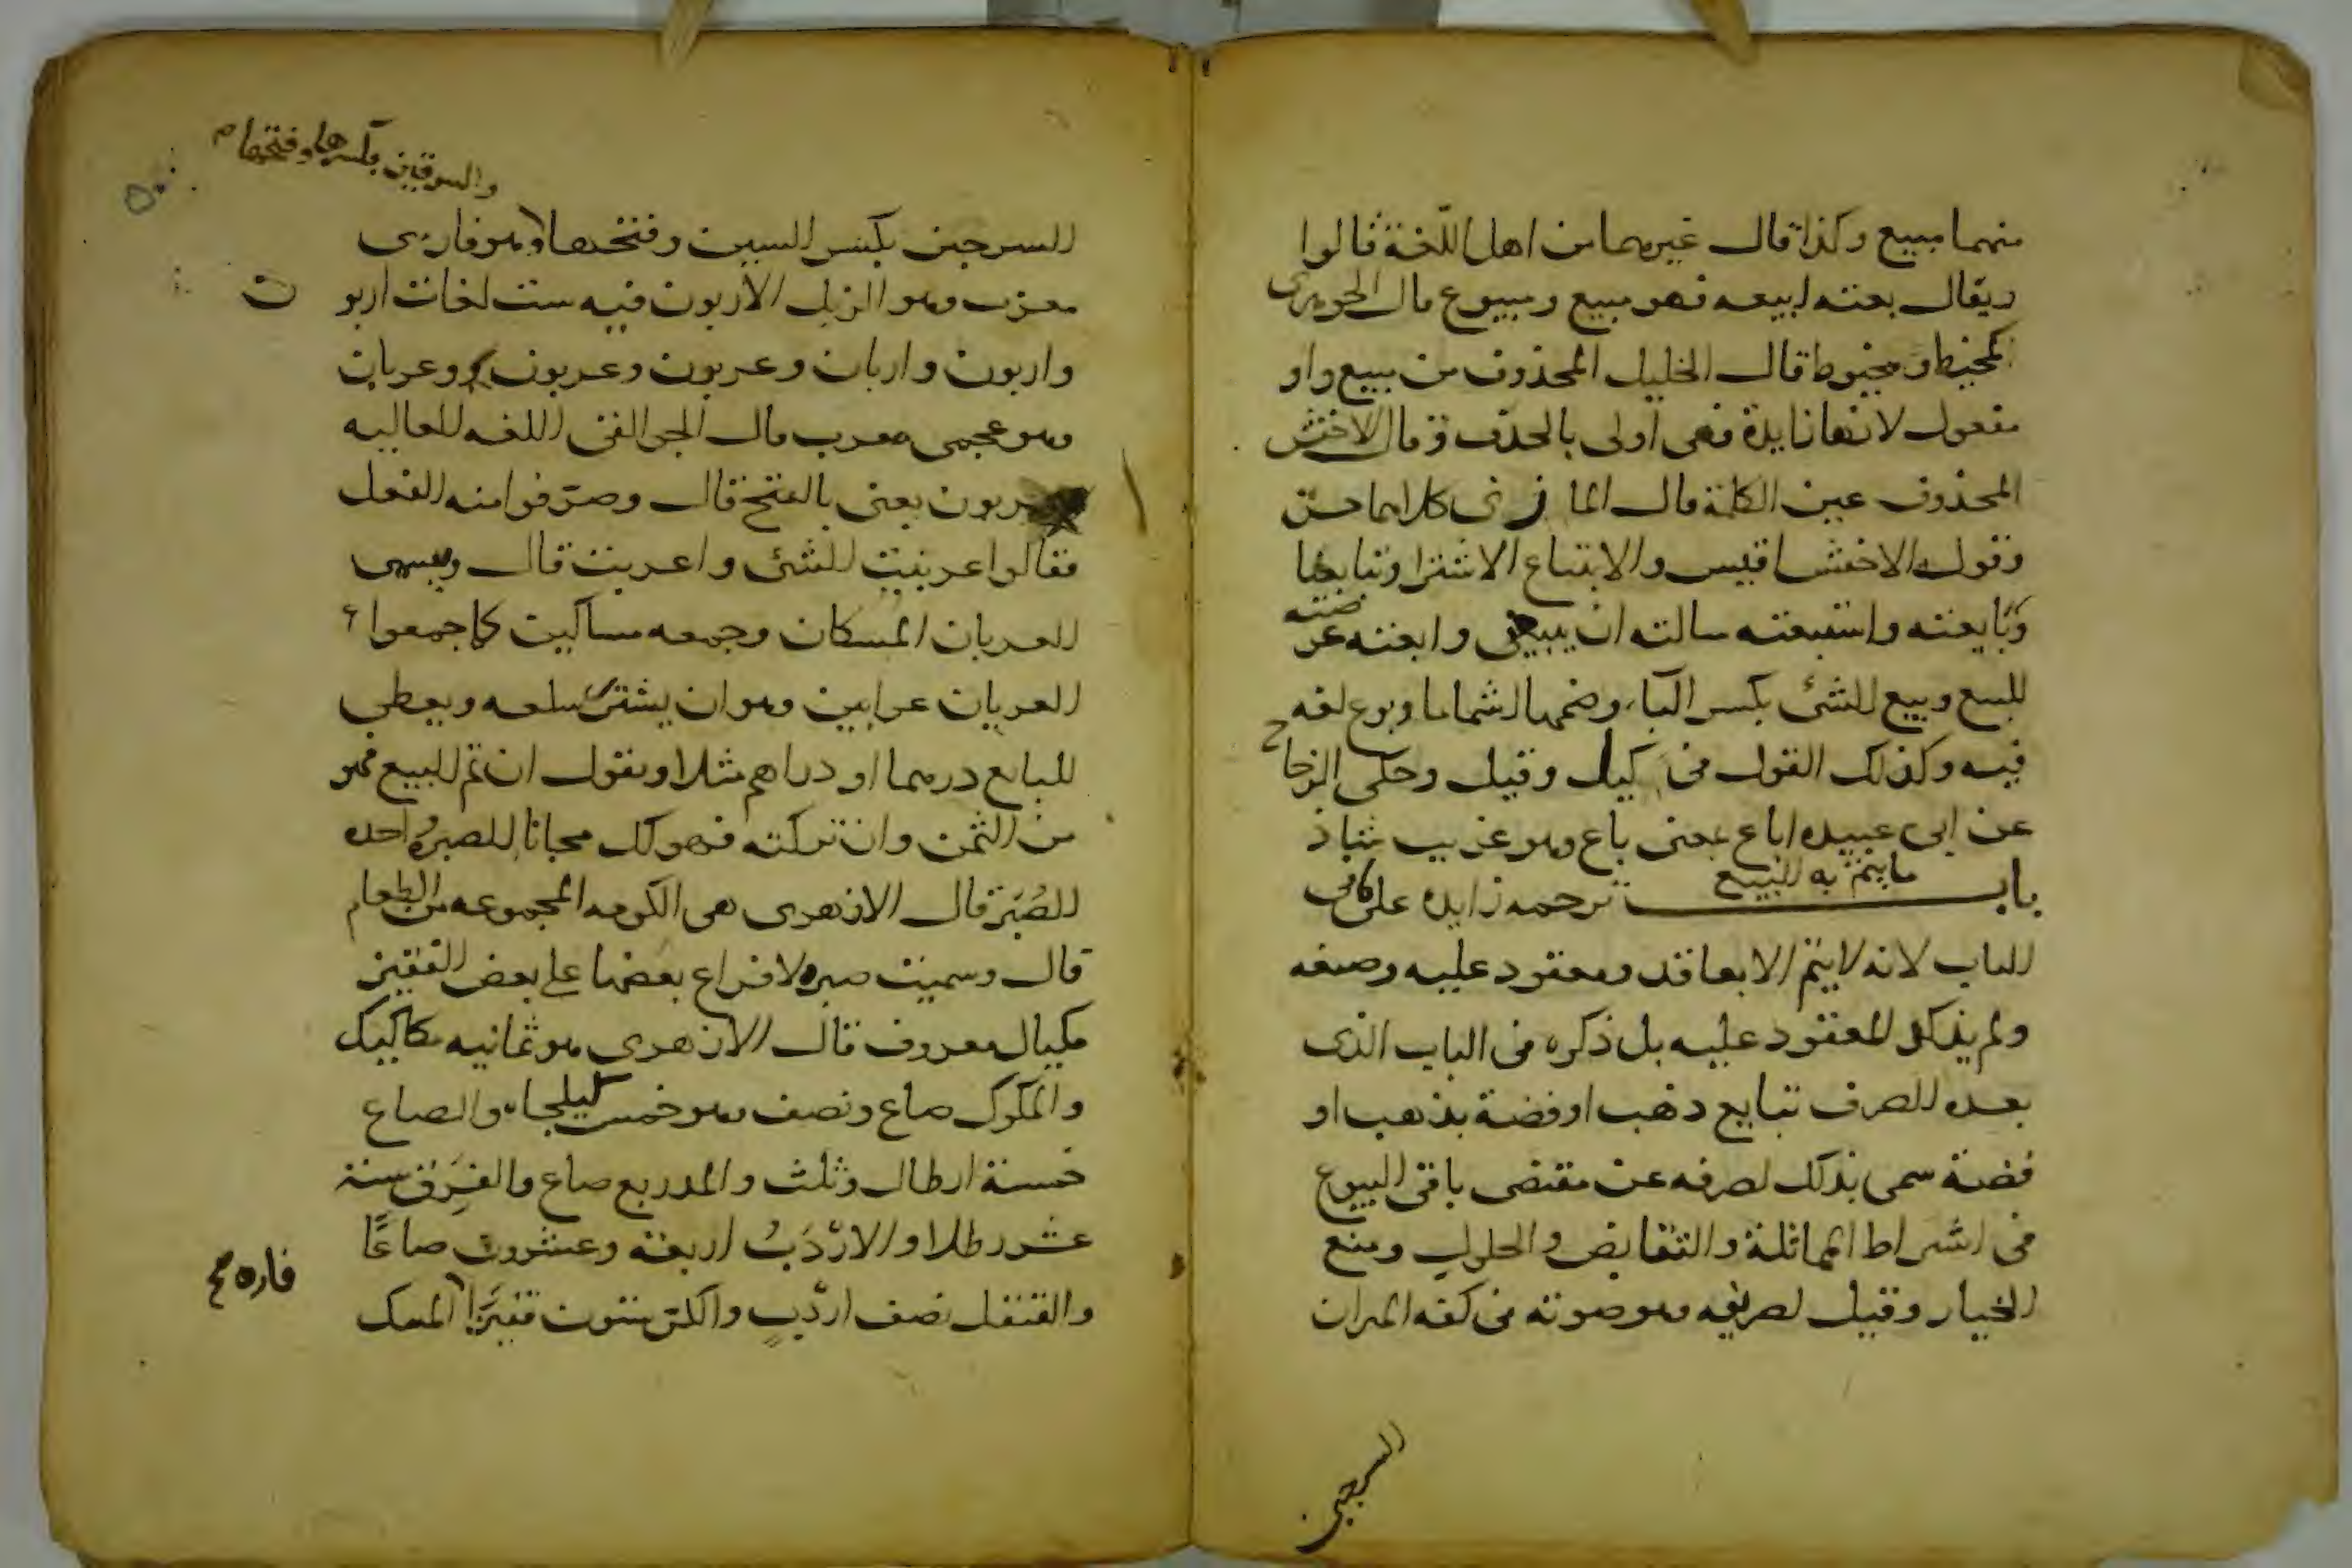 منهما مبيع وكذا قال غيرهما من اهل اللغة قالوا
ويقال بعته ابيعه فهو مبيع ومبيوع قال الجوهرى
كمخيط ومخيوط قال الخليل المحذوف من مبيع واو
مفعول لانها زايدة فهى اولى بالحذف وقال الاخفش
المحذوف عين الكلمة قال المازنى كلاهما حسن
وقول الاخفش اقيس والابتياع الاشترا وتبايعا
وبايعته واستبعته سالته ان يبيعنى وابعته عرضته
للبيع وبيع الشئ بكسر الباء وضمها اشماما وبوع لغه
فيه وكذلك القول فى كيل وقيل وحكى الزجاج
عن ابى عبيده اباع بمعنى باع وهو غريب شاذ
باب ما يتم به البيع ترجمه زايده على ما فى
الباب لانه لا يتم الا بعاقد ومعقود عليه وصيغه
ولم يذكر المعقود عليه بل ذكره فى الباب الذى
بعده الصرف تبايع ذهب او فضة بذهب او
فضة سمى بذلك لصرفه عن مقتضى باقى البيوع
فى اشتراط المماثلة والتقابض والحلول ومنع
الخيار وقيل لصريفه وهو صوته فى كفه الميزان
السرجين
والسرقين بكسرها وفتحها م
السرجين بكسر السين وفتحها وهو فارسى
معرب وهو الزبل الاربون فيه ست لغات اربون
واربون واربان وعربون وعربون وعربان
وهو عجمى معرب قال الجواليقى اللغه العاليه
عربون يعنى بالفتح قال وصرفوا منه الفعل
فقالوا عربنت الشئ واعربت قال ويسمى
العربان المسكان وجمعه مساكين كما جمعوا
العربان عرابين وهو ان يشترى سلعه ويعطى
البايع درهما او دراهم مثلا ويقول ان تم البيع فهو
من الثمن وان تركته فهو لك مجانا الصبرة واحده
الصبر قال الازهرى هى الكومه المجموعه من الطعام
قال وسميت صبره لافراغ بعضها على بعض القفيز
مكيال معروف قال الازهرى هو ثمانيه مكاكيك
والمكوك صاع ونصف وهو خمس كيلجات والصاع
خمسة ارطال وثلث والمد ربع صاع والفرق ستة
عشر رطلا والاردب اربعة وعشرون صاعا
والقنقل نصف اردب والكر ستون قفيزا المسك
فاره صح